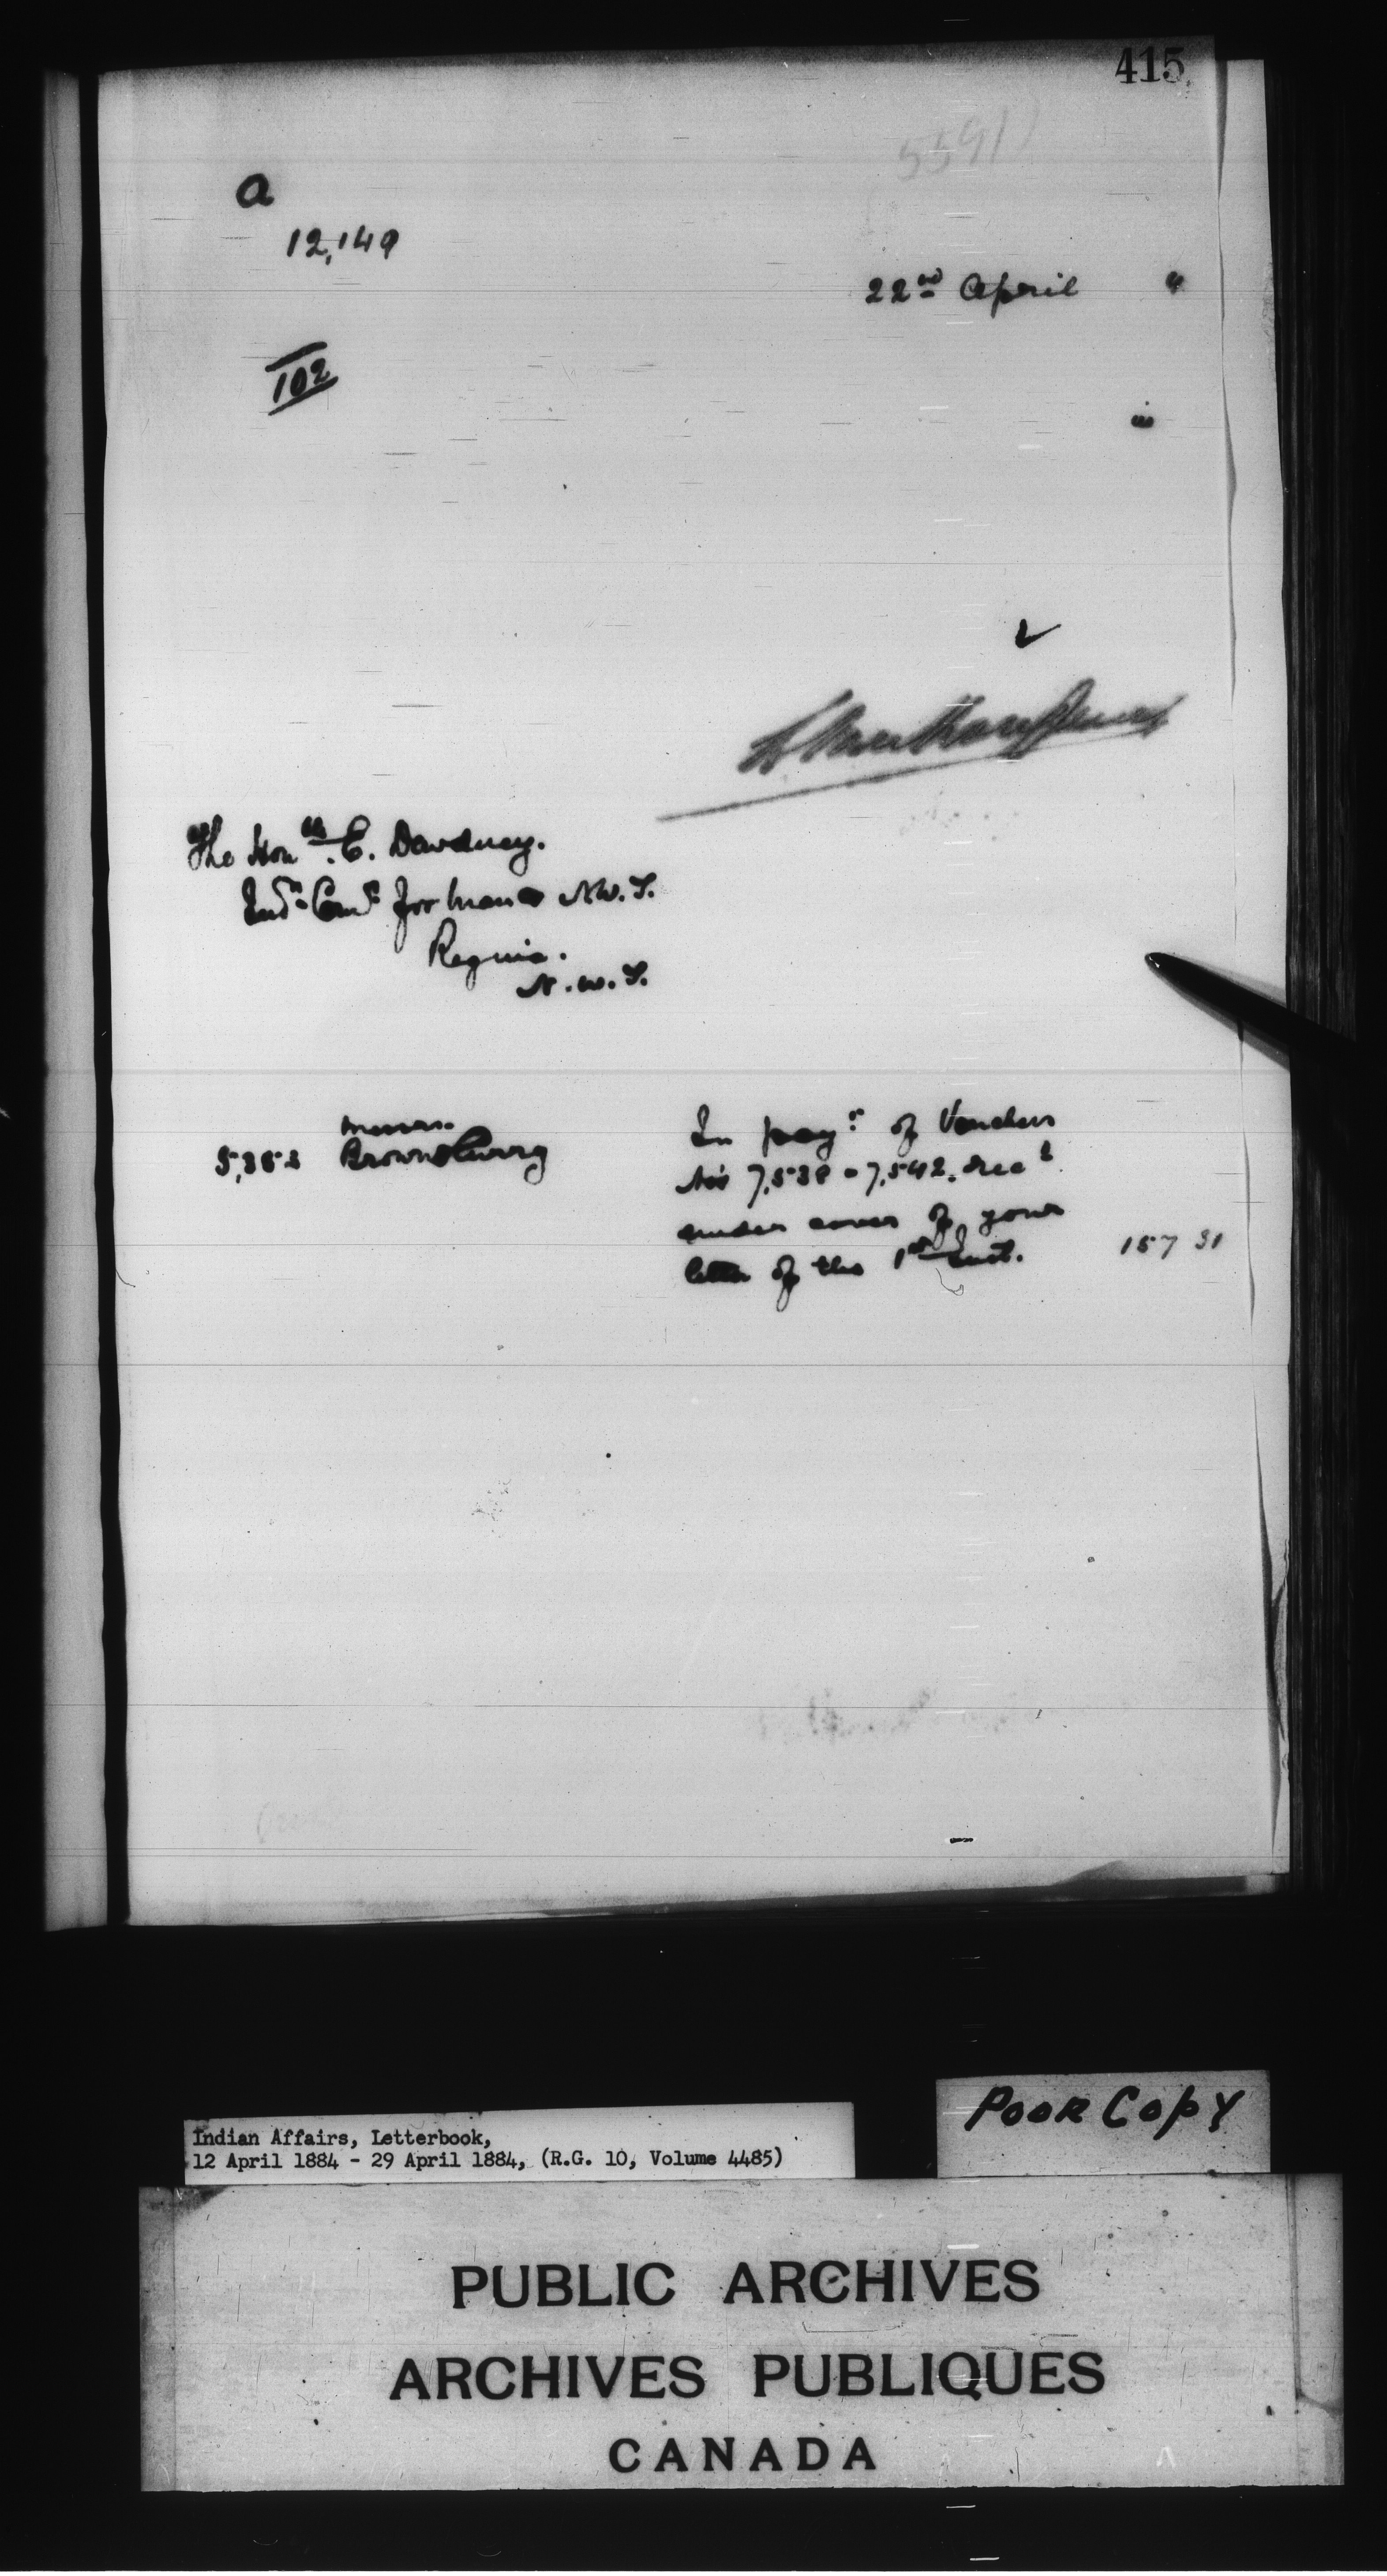 415
5591
a
12,149
22nd April "
102
L. Vankoughnet
The Honble. E. Dewdney.
Indn Comr for Man & N.W.T.
Regina.
N.W.T.
Messrs.
5,352 Brown & Curry
In payt of Vouchers
Nos 7,538 - 7,542. recd
under cover of your
letter of the 1st Inst. 157 31
Poor Copy
Indian Affairs, Letterbook,
12 April 1884 - 29 April 1884, (R.G. 10, Volume 4485)
PUBLIC ARCHIVES
ARCHIVES PUBLIQUES
CANADA